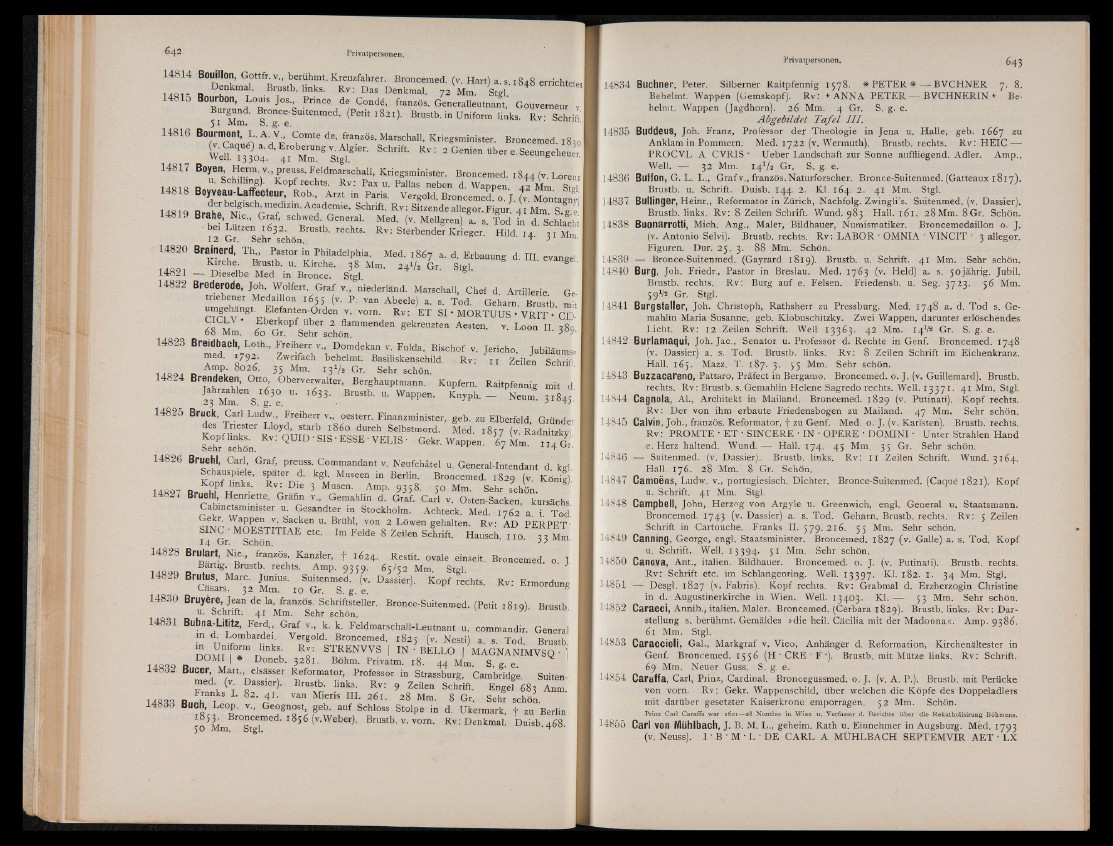 642
Privatpersonen.
14814 Bouillon, Gottfr. v., berühmt. Kreuzfahrer. Broncemed. (v. Hart) a. s. 1848 errichtetes
Denkmal. Brustb. links. Rv: Das Denkmal. 72 Mm. Stgl.
14815 Bourbon, Louis Jos., Prince de Condé, französ. Generalleutnant, Gouverneur v.
Burgund. Bronce-Suitenmed. (Petit 1821). Brustb. in Uniform links. Rv: Schrift.
51 Mm. S. g. e.
14816 Bourmont, L. A. V., Comte de, französ. Marschall, Kriegsminister. Broncemed. 1830
(v. Caqué) a. d. Eroberung v. Algier. Schrift. Rv: 2 Genien über e. Seeungeheuer.
Well. 13304. 41 Mm. Stgl.
14817 Boyen, Herm. v., preuss. Feldmarschall, Kriegsminister. Broncemed. 1844 (v. Lorenz
u. Schilling). Kopf rechts. Rv: Pax u. Pallas neben d. Wappen. 42 Mm. Stgl.
14818 Boyveau-Laffecteur, Rob., Arzt in Paris. Vergold. Broncemed. o. J. (v. Montagny)
der belgisch. medizin. Academie. Schrift. Rv: Sitzende allegor. Figur. 41 Mm. S. g. e.
14819 Brahe, Nic., Graf, schwed. General. Med. (v. Mellgren) a. s. Tod in d. Schlacht
bei Lützen 1632. Brustb. rechts. Rv: Sterbender Krieger. Hild. 14. 31 Mm.
12 Gr. Sehr schön.
14820 Brainerd, Th., Pastor in Philadelphia. Med. 1867 a. d. Erbauung d. III. evangel.
Kirche. Brustb. u. Kirche. 38 Mm. 24½ Gr. Stgl.
14821 — Dieselbe Med. in Bronce. Stgl.
14822 Brederode, Joh. Wolfert, Graf v., niederländ. Marschall, Chef d. Artillerie. Ge-
triebener Medaillon 1655 (v. P. van Abeele) a. s. Tod. Geharn. Brustb. mit
umgehängt. Elefanten-Orden v. vorn. Rv: ET SI • MORTUUS • VRIT • CID •
CICLV • Eberkopf über 2 flammenden gekreuzten Aesten. v. Loon II. 389.
68 Mm. 60 Gr. Sehr schön.
14823 Breidbach, Loth., Freiherr v., Domdekan v. Fulda, Bischof v. Jericho, Jubiläums-
med. 1792. Zweifach behelmt. Basiliskenschild. Rv: 11 Zeilen Schrift.
Amp. 8026. 35 Mm. 13½ Gr. Sehr schön.
14824 Brendeken, Otto, Oberverwalter, Berghauptmann. Kupfern. Raitpfennig mit d.
Jahrzahlen 1630 u. 1633. Brustb. u. Wappen. Knyph. — Neum. 31845.
23 Mm. S. g. e.
14825 Bruck, Carl Ludw., Freiherr v., oesterr. Finanzminister, geb. zu Elberfeld, Gründer
des Triester Lloyd, starb 1860 durch Selbstmord. Med. 1857 (v. Radnitzky).
Kopf links. Rv: QUID • SIS • ESSE • VELIS • Gekr. Wappen. 67 Mm. 114 Gr.
Sehr schön.
14826 Bruehl, Carl, Graf, preuss. Commandant v. Neufchâtel u. General-Intendant d. kgl.
Schauspiele, später d. kgl. Museen in Berlin. Broncemed. 1829 (v. König).
Kopf links. Rv: Die 3 Musen. Amp. 9358. 50 Mm. Sehr schön.
14827 Bruehl, Henriette, Gräfin v., Gemahlin d. Graf. Carl v. Osten-Sacken, kursächs.
Cabinetsminister u. Gesandter in Stockholm. Achteck. Med. 1762 a. i. Tod.
Gekr. Wappen v. Sacken u. Brühl, von 2 Löwen gehalten. Rv: AD PERPET •
SINC • MOESTITIAE etc. Im Felde 8 Zeilen Schrift. Hausch. 110. 33 Mm.
14 Gr. Schön.
14828 Brulart, Nic., französ. Kanzler, † 1624. Restit. ovale einseit. Broncemed. o. J.
Bärtig. Brustb. rechts. Amp. 9359. 65/52 Mm. Stgl.
14829 Brutus, Marc. Junius. Suitenmed. (v. Dassier). Kopf rechts. Rv: Ermordung
Cäsars. 32 Mm. 10 Gr. S. g. e.
14830 Bruyère, Jean de la, französ. Schriftsteller. Bronce-Suitenmed. (Petit 1819). Brustb.
u. Schrift. 41 Mm. Sehr schön.
14831 Bubna-Lititz, Ferd., Graf v., k. k. Feldmarschall-Leutnant u. commandir. General
in d. Lombardei. Vergold. Broncemed. 1825 (v. Nesti) a. s. Tod. Brustb.
in Uniform links. Rv: STRENVVS | IN • BELLO | MAGNANIMVSQ • |
DOMI | * Doneb. 3281. Böhm. Privatm. 18. 44 Mm. S. g. e.
14832 Bucer, Mart., elsässer Reformator, Professor in Strassburg, Cambridge. Suiten-
med. (v. Dassier). Brustb. links. Rv: 9 Zeilen Schrift. Engel 683 Anm.
Franks I. 82. 41. van Mieris III. 261. 28 Mm. 8 Gr. Sehr schön.
14833 Buch, Leop. v., Geognost, geb. auf Schloss Stolpe in d. Ukermark, † zu Berlin
1853. Broncemed. 1856 (v. Weber). Brustb. v. vorn. Rv: Denkmal. Duisb. 468.
50 Mm. Stgl.
Privatpersonen.
643
14834 Buchner, Peter. Silberner Raitpfennig 1578. * PETER * — BVCHNER 7. 8.
Behelmt. Wappen (Gemskopf). Rv: * ANNA PETER — BVCHNERIN * Be-
helmt. Wappen (Jagdhorn). 26 Mm. 4 Gr. S. g. e.
Abgebildet Tafel III.
14835 Buddeus, Joh. Franz, Professor der Theologie in Jena u. Halle, geb. 1667 zu
Anklam in Pommern. Med. 1722 (v. Wermuth). Brustb. rechts. Rv: HEIC —
PROCVL A CVRIS • Ueber Landschaft zur Sonne auffliegend. Adler. Amp.,
Well. — 32 Mm. 14½ Gr. S. g. e.
14836 Buffon, G. L. L., Graf v., französ. Naturforscher. Bronce-Suitenmed. (Gatteaux 1817).
Brustb. u. Schrift. Duisb. 144. 2. Kl. 164. 2. 41 Mm. Stgl.
14837 Bullinger, Heinr., Reformator in Zürich, Nachfolg. Zwingli's. Suitenmed. (v. Dassier).
Brustb. links. Rv: 8 Zeilen Schrift. Wund. 983 Hall. 161. 28 Mm. 8 Gr. Schön.
14838 Buonarrotti, Mich. Ang., Maler, Bildhauer, Numismatiker. Broncemedaillon o. J.
(v. Antonio Selvi). Brustb. rechts. Rv: LABOR • OMNIA • VINCIT • 3 allegor.
Figuren. Dur. 25. 3. 88 Mm. Schön.
14839 — Bronce-Suitenmed. (Gayrard 1819). Brustb. u. Schrift. 41 Mm. Sehr schön.
14840 Burg, Joh. Friedr., Pastor in Breslau. Med. 1763 (v. Held) a. s. 50jährig. Jubil.
Brustb. rechts. Rv: Burg auf e. Felsen. Friedensb. u. Seg. 3723. 56 Mm.
59½ Gr. Stgl.
14841 Burgstaller, Joh. Christoph, Rathsherr zu Pressburg. Med. 1748 a. d. Tod s. Ge-
mahlin Maria Susanne, geb. Klobuschitzky. Zwei Wappen, darunter erlöschendes
Licht. Rv: 12 Zeilen Schrift. Well 13363. 42 Mm. 14½ Gr. S. g. e.
14842 Burlamaqui, Joh. Jac., Senator u. Professor d. Rechte in Genf. Broncemed. 1748
(v. Dassier) a. s. Tod. Brustb. links. Rv: 8 Zeilen Schrift im Eichenkranz.
Hall. 165. Mazz. T. 187. 3. 55 Mm. Sehr schön.
14843 Buzzacareno, Pattaro, Präfect in Bergamo. Broncemed. o. J. (v. Guillemard). Brustb.
rechts. Rv: Brustb. s. Gemahlin Helene Sagredo rechts. Well. 13371. 41 Mm. Stgl.
14844 Cagnola, Al., Architekt in Mailand. Broncemed. 1829 (v. Putinati). Kopf rechts.
Rv: Der von ihm erbaute Friedensbogen zu Mailand. 47 Mm. Sehr schön.
14845 Calvin, Joh., französ. Reformator, † zu Genf. Med. o. J. (v. Karlsten). Brustb. rechts.
Rv: PROMTE • ET • SINCERE • IN • OPERE • DOMINI • Unter Strahlen Hand
e. Herz haltend. Wund. — Hall. 174. 45 Mm. 35 Gr. Sehr schön.
14846 — Suitenmed. (v. Dassier). Brustb. links. Rv: 11 Zeilen Schrift. Wund. 3164.
Hall. 176. 28 Mm. 8 Gr. Schön.
14847 Camoëns, Ludw. v., portugiesisch. Dichter. Bronce-Suitenmed. (Caqué 1821). Kopf
u. Schrift. 41 Mm. Stgl.
14848 Campbell, John, Herzog von Argyle u. Greenwich, engl. General u. Staatsmann.
Broncemed. 1743 (v. Dassier) a. s. Tod. Geharn. Brustb. rechts. Rv: 5 Zeilen
Schrift in Cartouche. Franks II. 579. 216. 55 Mm. Sehr schön.
14849 Canning, George, engl. Staatsminister. Broncemed. 1827 (v. Galle) a. s. Tod. Kopf
u. Schrift. Well. 13394. 51 Mm. Sehr schön.
14850 Canova, Ant., italien. Bildhauer. Broncemed. o. J. (v. Putinati). Brustb. rechts.
Rv: Schrift etc. im Schlangenring. Well. 13397. Kl. 182. 1. 34 Mm. Stgl.
14851 — Desgl. 1827 (v. Fabris). Kopf rechts. Rv: Grabmal d. Erzherzogin Christine
in d. Augustinerkirche in Wien. Well. 13403. Kl. — 53 Mm. Sehr schön.
14852 Caracci, Annib., italien. Maler. Broncemed. (Cerbara 1829). Brustb. links. Rv: Dar-
stellung s. berühmt. Gemäldes »die heil. Cäcilia mit der Madonna«. Amp. 9386.
61 Mm. Stgl.
14853 Caraccioli, Gal., Markgraf v. Vico, Anhänger d. Reformation, Kirchenältester in
Genf. Broncemed. 1556 (H • CRE • F •). Brustb. mit Mütze links. Rv: Schrift.
69 Mm. Neuer Guss. S. g. e.
14854 Caraffa, Carl, Prinz, Cardinal. Broncegussmed. o. J. (v. A. P.). Brustb. mit Perücke
von vorn. Rv: Gekr. Wappenschild, über welchen die Köpfe des Doppeladlers
mit darüber gesetzter Kaiserkrone emporragen. 52 Mm. Schön.
Prinz Carl Caraffa war 1621—28 Nuntius in Wien u. Verfasser d. Berichts über die Rekatholisirung Böhmens.
14855 Carl von Mühlbach, J. B. M. L., geheim. Rath u. Einnehmer in Augsburg. Med. 1793
(v. Neuss). I • B • M • L • DE CARL A MÜHLBACH SEPTEMVIR AET • LX